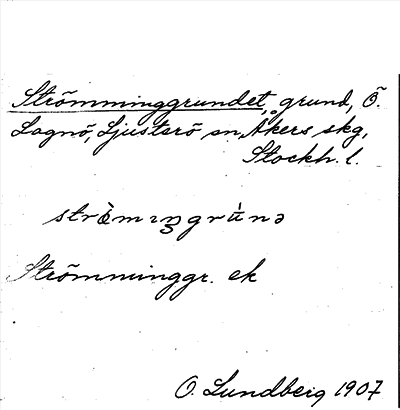 Strömminggrundet, grund, Ö.
Lagnö, Ljusterö sn, Åkers skg,
Stockh. l.
strö̀mıŋgrùnə
Strömminggr. ek
O. Lundberg 1907